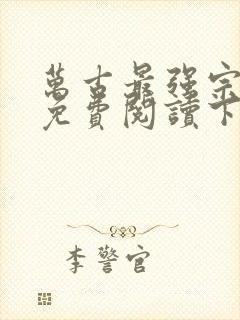 萬古最強宗
免費閱讀下
李警官